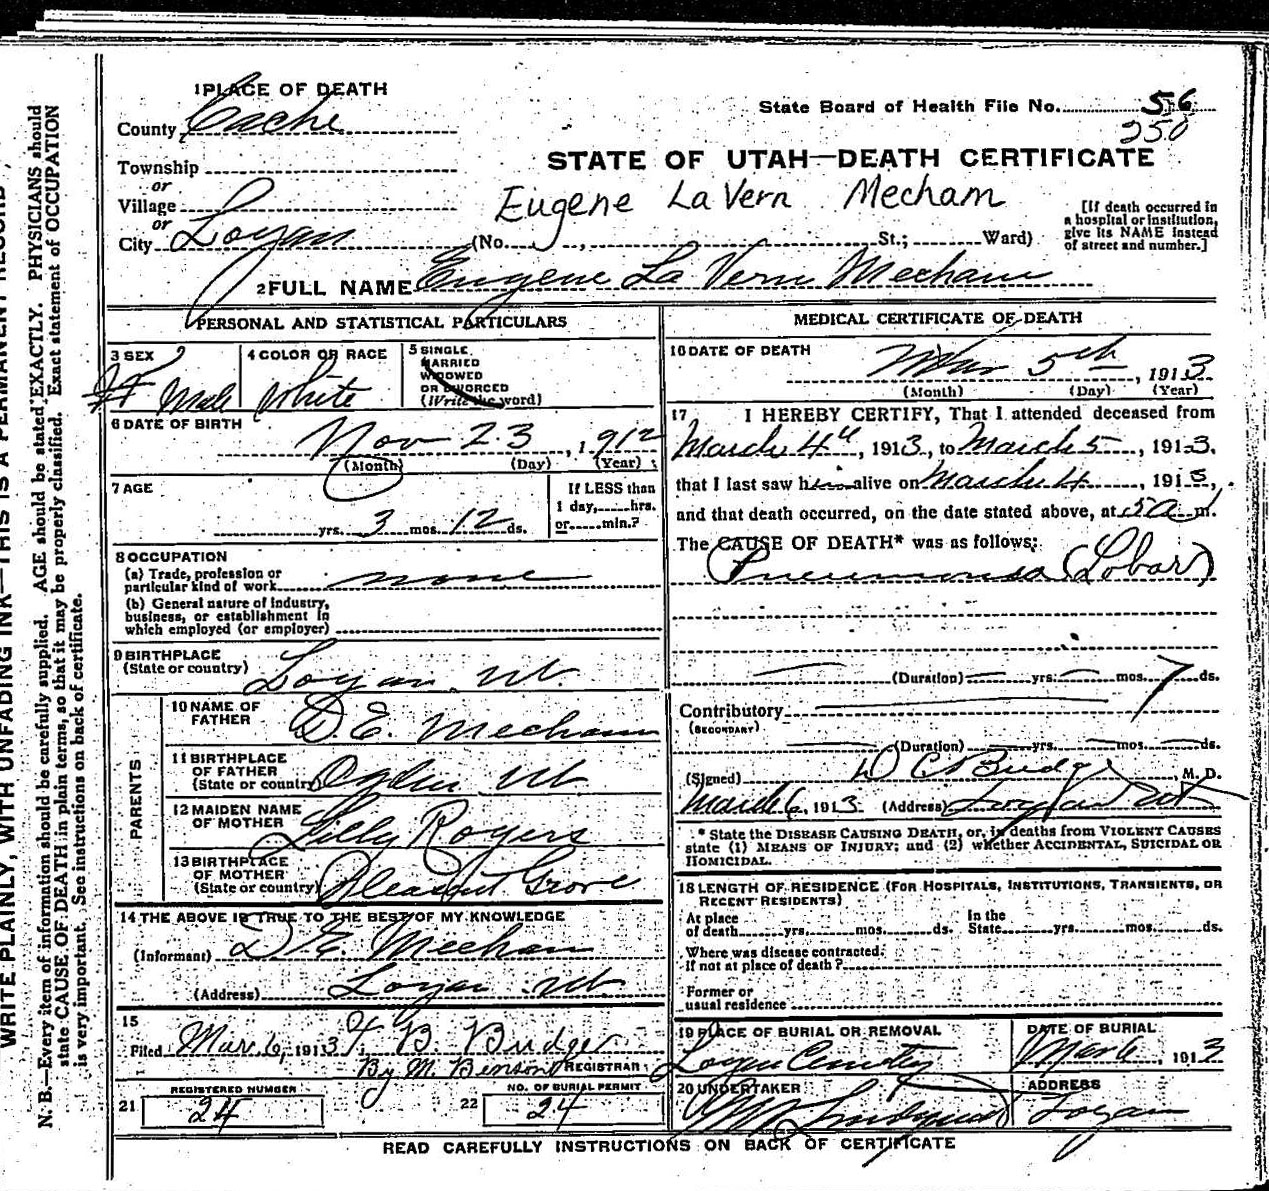 1 PLACE OF DEATH
County Cache
State Board of Health File No. 56
250
Township
or
Village
or
City Logan
STATE OF UTAH—DEATH CERTIFICATE
Eugene La Vern Mecham
(No. , St.; Ward)
[If death occurred in
a hospital or institution,
give its NAME instead
of street and number.]
2 FULL NAME Eugene La Vern Mecham
PERSONAL AND STATISTICAL PARTICULARS
3 SEX Male
4 COLOR OR RACE White
5 SINGLE
MARRIED
WIDOWED
OR DIVORCED
(Write the word)
6 DATE OF BIRTH
Nov 23, 1912
(Month) (Day) (Year)
7 AGE
yrs. 3 mos. 12 ds.
If LESS than
1 day, hrs.
or min.?
8 OCCUPATION
(a) Trade, profession or
particular kind of work none
(b) General nature of industry,
business, or establishment in
which employed (or employer)
9 BIRTHPLACE
(State or country) Logan Ut.
PARENTS
10 NAME OF
FATHER D E. Mecham
11 BIRTHPLACE
OF FATHER
(State or country) Ogden Ut.
12 MAIDEN NAME
OF MOTHER Lilly Rogers
13 BIRTHPLACE
OF MOTHER
(State or country) Pleasant Grove
14 THE ABOVE IS TRUE TO THE BEST OF MY KNOWLEDGE
(Informant) D E. Mecham
(Address) Logan Ut
15
Filed Mar. 6, 1913 B. Budge
By M. Benson REGISTRAR
REGISTERED NUMBER
21 24
NO. OF BURIAL PERMIT
22 24
MEDICAL CERTIFICATE OF DEATH
16 DATE OF DEATH
Mar 5th, 1913
(Month) (Day) (Year)
17 I HEREBY CERTIFY, That I attended deceased from
March 4th, 1913, to March 5, 1913,
that I last saw him alive on March 4, 1913,
and that death occurred, on the date stated above, at 5 a m.
The CAUSE OF DEATH* was as follows:
Pneumonia (Lobar)
(Duration) yrs. mos. 7 ds.
Contributory
(SECONDARY)
(Duration) yrs. mos. ds.
(Signed) D C Budge, M. D.
March 6, 1913 (Address) Logan Ut
* State the DISEASE CAUSING DEATH, or, in deaths from VIOLENT CAUSES
state (1) MEANS OF INJURY; and (2) whether ACCIDENTAL, SUICIDAL OR
HOMICIDAL.
18 LENGTH OF RESIDENCE (FOR HOSPITALS, INSTITUTIONS, TRANSIENTS, OR
RECENT RESIDENTS)
At place
of death yrs. mos. ds.
In the
State yrs. mos. ds.
Where was disease contracted,
if not at place of death?
Former or
usual residence
19 PLACE OF BURIAL OR REMOVAL
Logan Cemetery
DATE OF BURIAL
Mar 6, 1913
20 UNDERTAKER
ADDRESS
Logan
READ CAREFULLY INSTRUCTIONS ON BACK OF CERTIFICATE
WRITE PLAINLY, WITH UNFADING INK—THIS IS A PERMANENT RECORD
N. B.—Every item of information should be carefully supplied. AGE should be stated EXACTLY. PHYSICIANS should
state CAUSE OF DEATH in plain terms, so that it may be properly classified. Exact statement of OCCUPATION
is very important. See instructions on back of certificate.